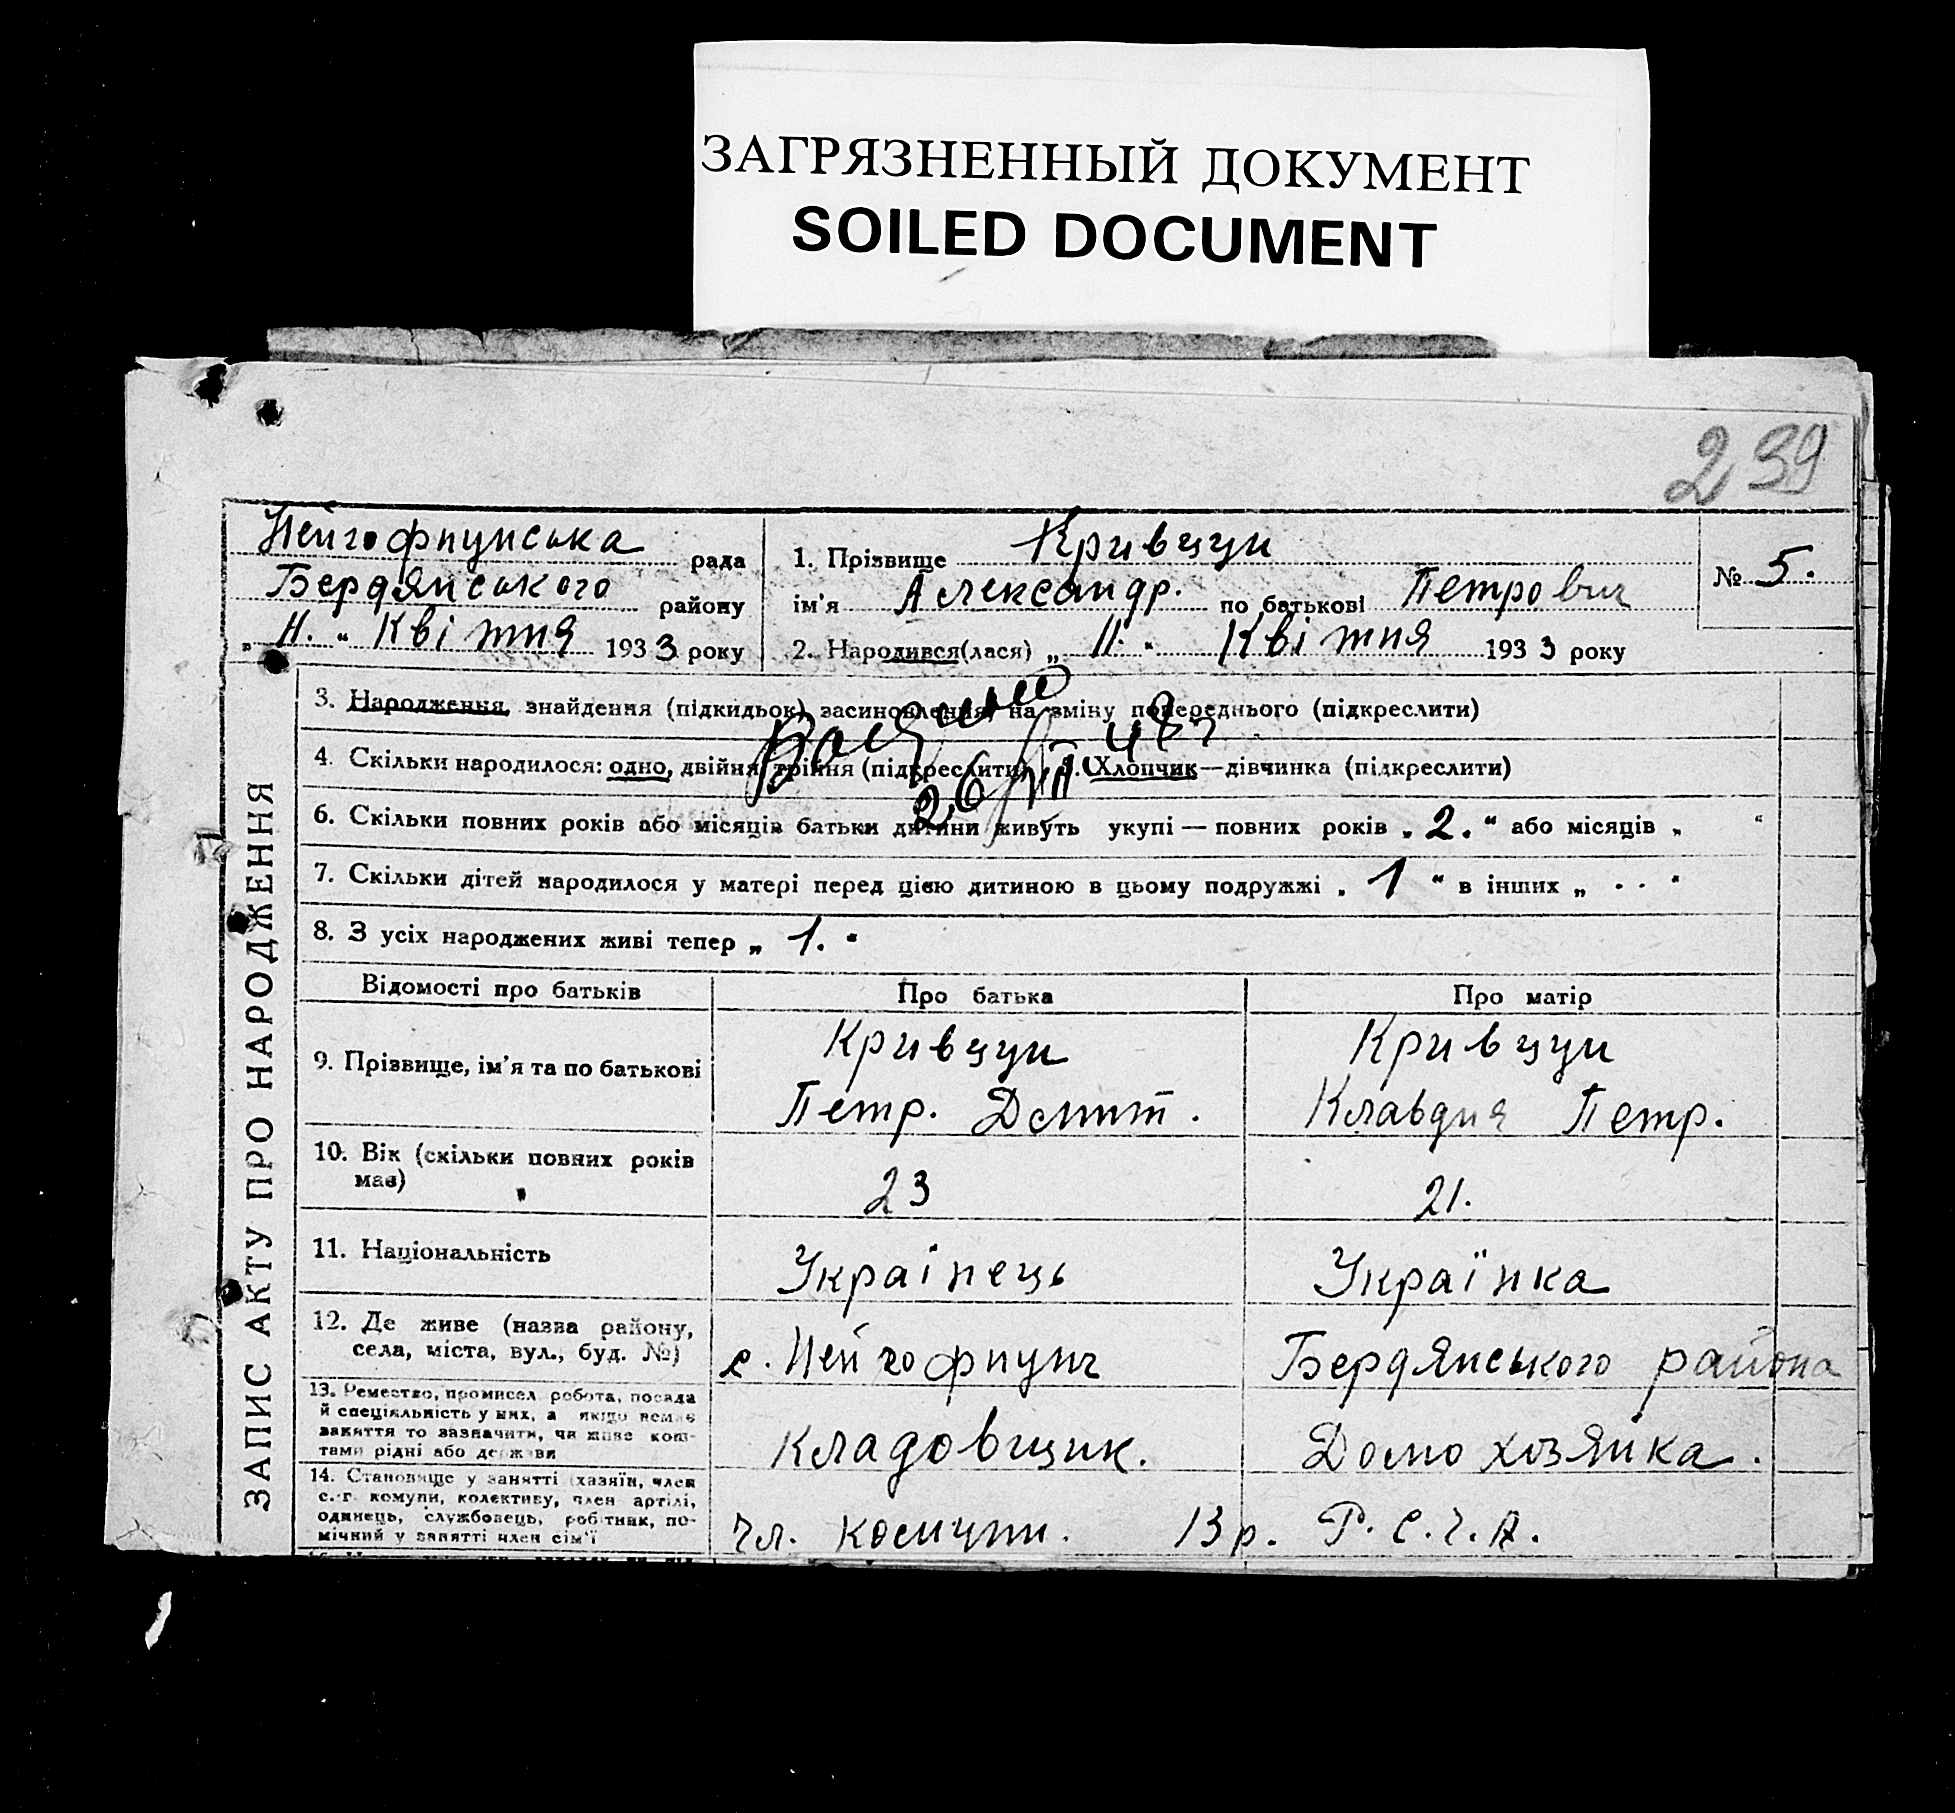 ЗАГРЯЗНЕННЫЙ ДОКУМЕНТ
SOILED DOCUMENT
239
Нейгофнунська рада
Бердянського району
„11.“ Квітня 1933 року
1. Прізвище Кривцун
ім'я Александр. по батькові Петрович
2. Народився(лася) „11.“ Квітня 1933 року
№ 5.
ЗАПИС АКТУ ПРО НАРОДЖЕННЯ
3. Народження, знайдення (підкидьок) засиновлення, на зміну попереднього (підкреслити)
4. Скільки народилося: одно, двійня, трійня (підкреслити) 5. Хлопчик—дівчинка (підкреслити)
6. Скільки повних років або місяців батьки дитини живуть укупі — повних років „2.“ або місяців „ “
7. Скільки дітей народилося у матері перед цією дитиною в цьому подружжі „1“ в інших „ - - “
8. З усіх народжених живі тепер „1.“
Відомості про батьків Про батька Про матір
9. Прізвище, ім'я та по батькові
Кривцун
Петр. Дмит.
Кривцун
Клавдия Петр.
10. Вік (скільки повних років
має)
23
21.
11. Національність
Українець
Українка
12. Де живе (назва району,
села, міста, вул., буд. №)
с. Нейгофнунг
Бердянського района
13. Ремество, промисел робота, посада
й спеціяльність у них, а якщо немає
заняття то зазначити, чи живе кош-
тами рідні або держави
Кладовщик.
Домохозяйка.
14. Становище у занятті (хазяїн, член
с.-г. комуни, колективу, член артілі,
одинець, службовець, робітник, по-
мічний у занятті член сім'ї
чл. комуни. 13 р. Р. С. Ч. А.